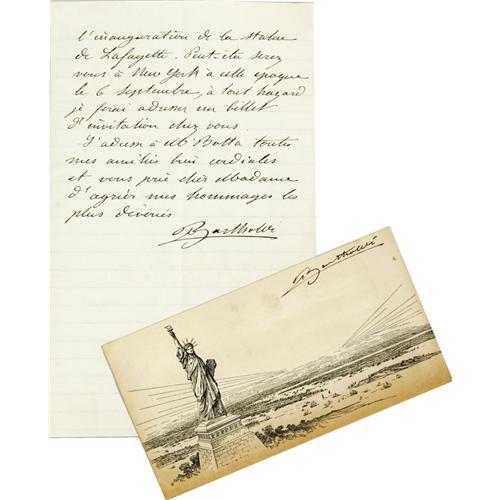 l'inauguration de la statue
de Lafayette. Peut-être serez
vous à New York à cette époque
le 6 septembre, à tout hazard
je ferai adresser un billet
d'invitation chez vous.
J'adresse à Mr Botta toutes
mes amitiés bien cordiales
et vous prie cher Madame
d'agréer mes hommages les
plus dévoués
Bartholdi
Bartholdi